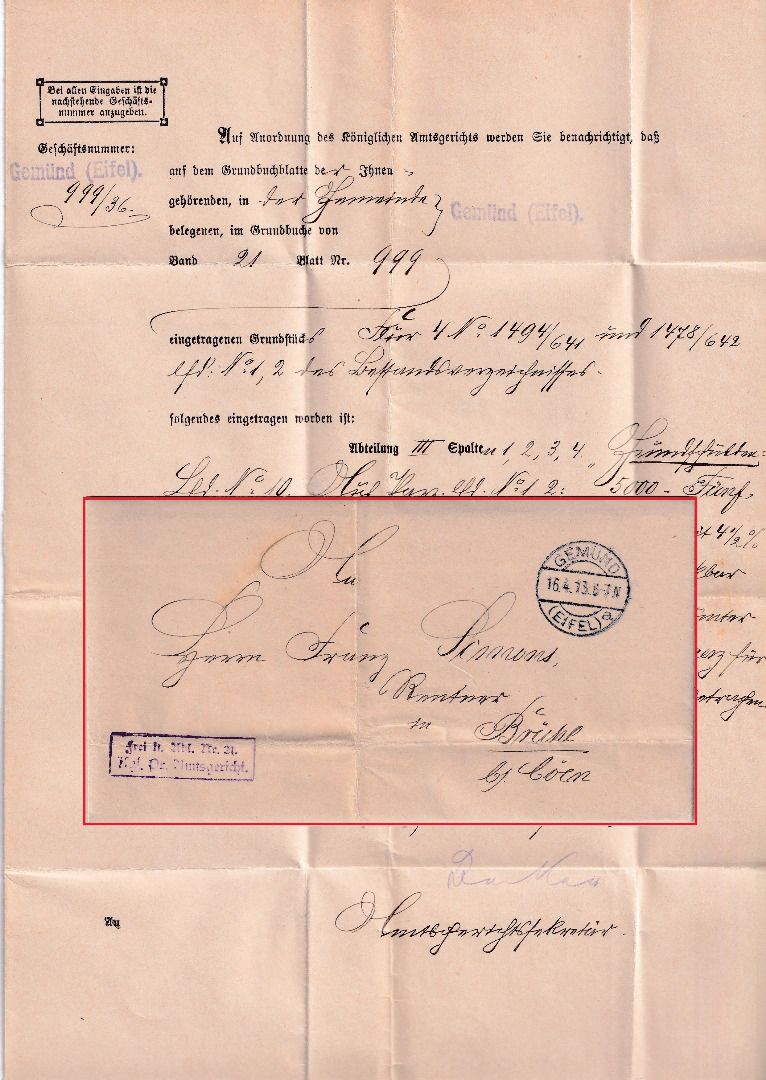 Bei allen Eingaben ist die
nachstehende Geschäfts-
nummer anzugeben.
Geschäftsnummer:
Gemünd (Eifel).
999/36
Auf Anordnung des Königlichen Amtsgerichts werden Sie benachrichtigt, daß
auf dem Grundbuchblatte der Ihnen
gehörenden, in der Gemeinde
Gemünd (Eifel).
belegenen, im Grundbuche von
Band 21 Blatt Nr. 999
eingetragenen Grundstücks Flur 4 No. 1494/641 und 1478/642
lfd. No. 1, 2 des Bestandsverzeichnisses.
folgendes eingetragen worden ist:
Abteilung III Spalten 1, 2, 3, 4. „Grundschulden:
Lfd. No. 10. Auf Parz. lfd. No. 1 2: 5000 - Fünf-
4½%
bar
unter
für
getragen
An
Herrn Franz Simons,
Rentner
in Brühl
bj. Cöln
GEMÜND
16.4.13.6-7N
(EIFEL) a
Frei lt. Abl. Nr. 21.
Kgl. Pr. Amtsgericht.
Amtsgerichtssekretär.
An